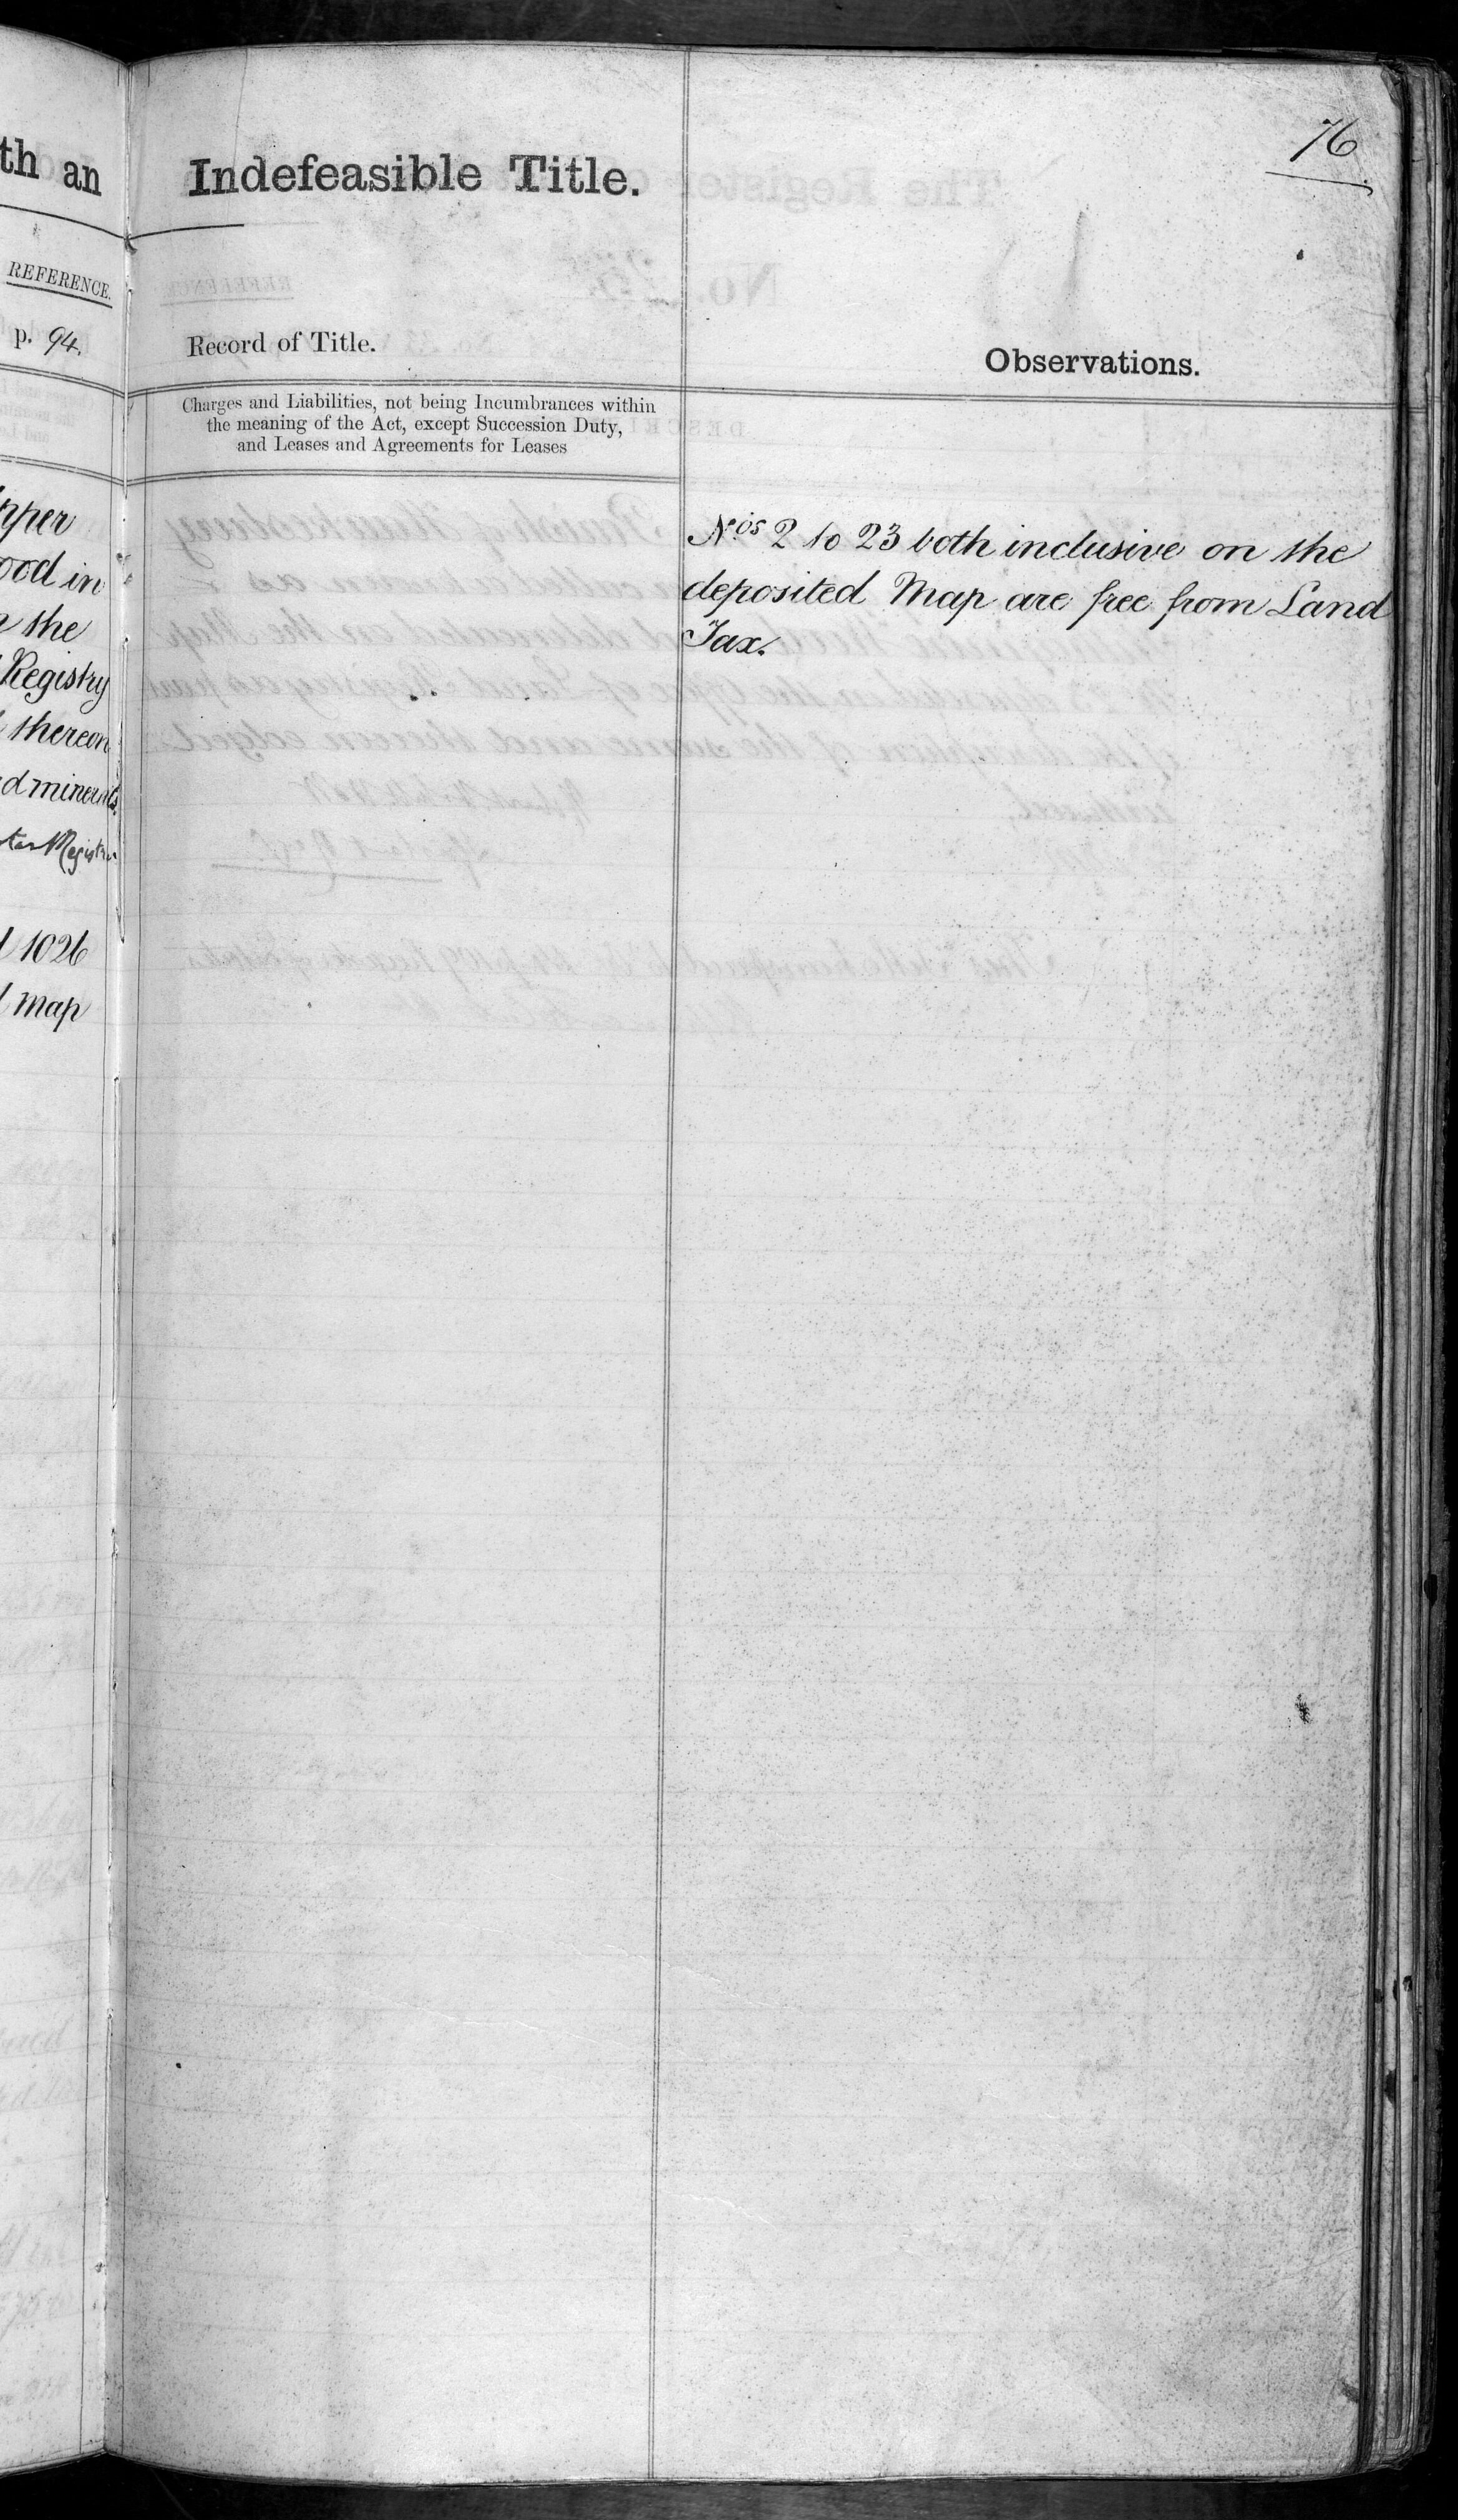 th an
REFERENCE.
p. 94.
pper
ood in
the
Registry
thereon
d minerals.
1026
map
76
Indefeasible Title.
Record of Title.
Observations.
Charges and Liabilities, not being Incumbrances within
the meaning of the Act, except Succession Duty,
and Leases and Agreements for Leases
Nos 2 to 23 both inclusive on the
deposited Map are free from Land
Tax.